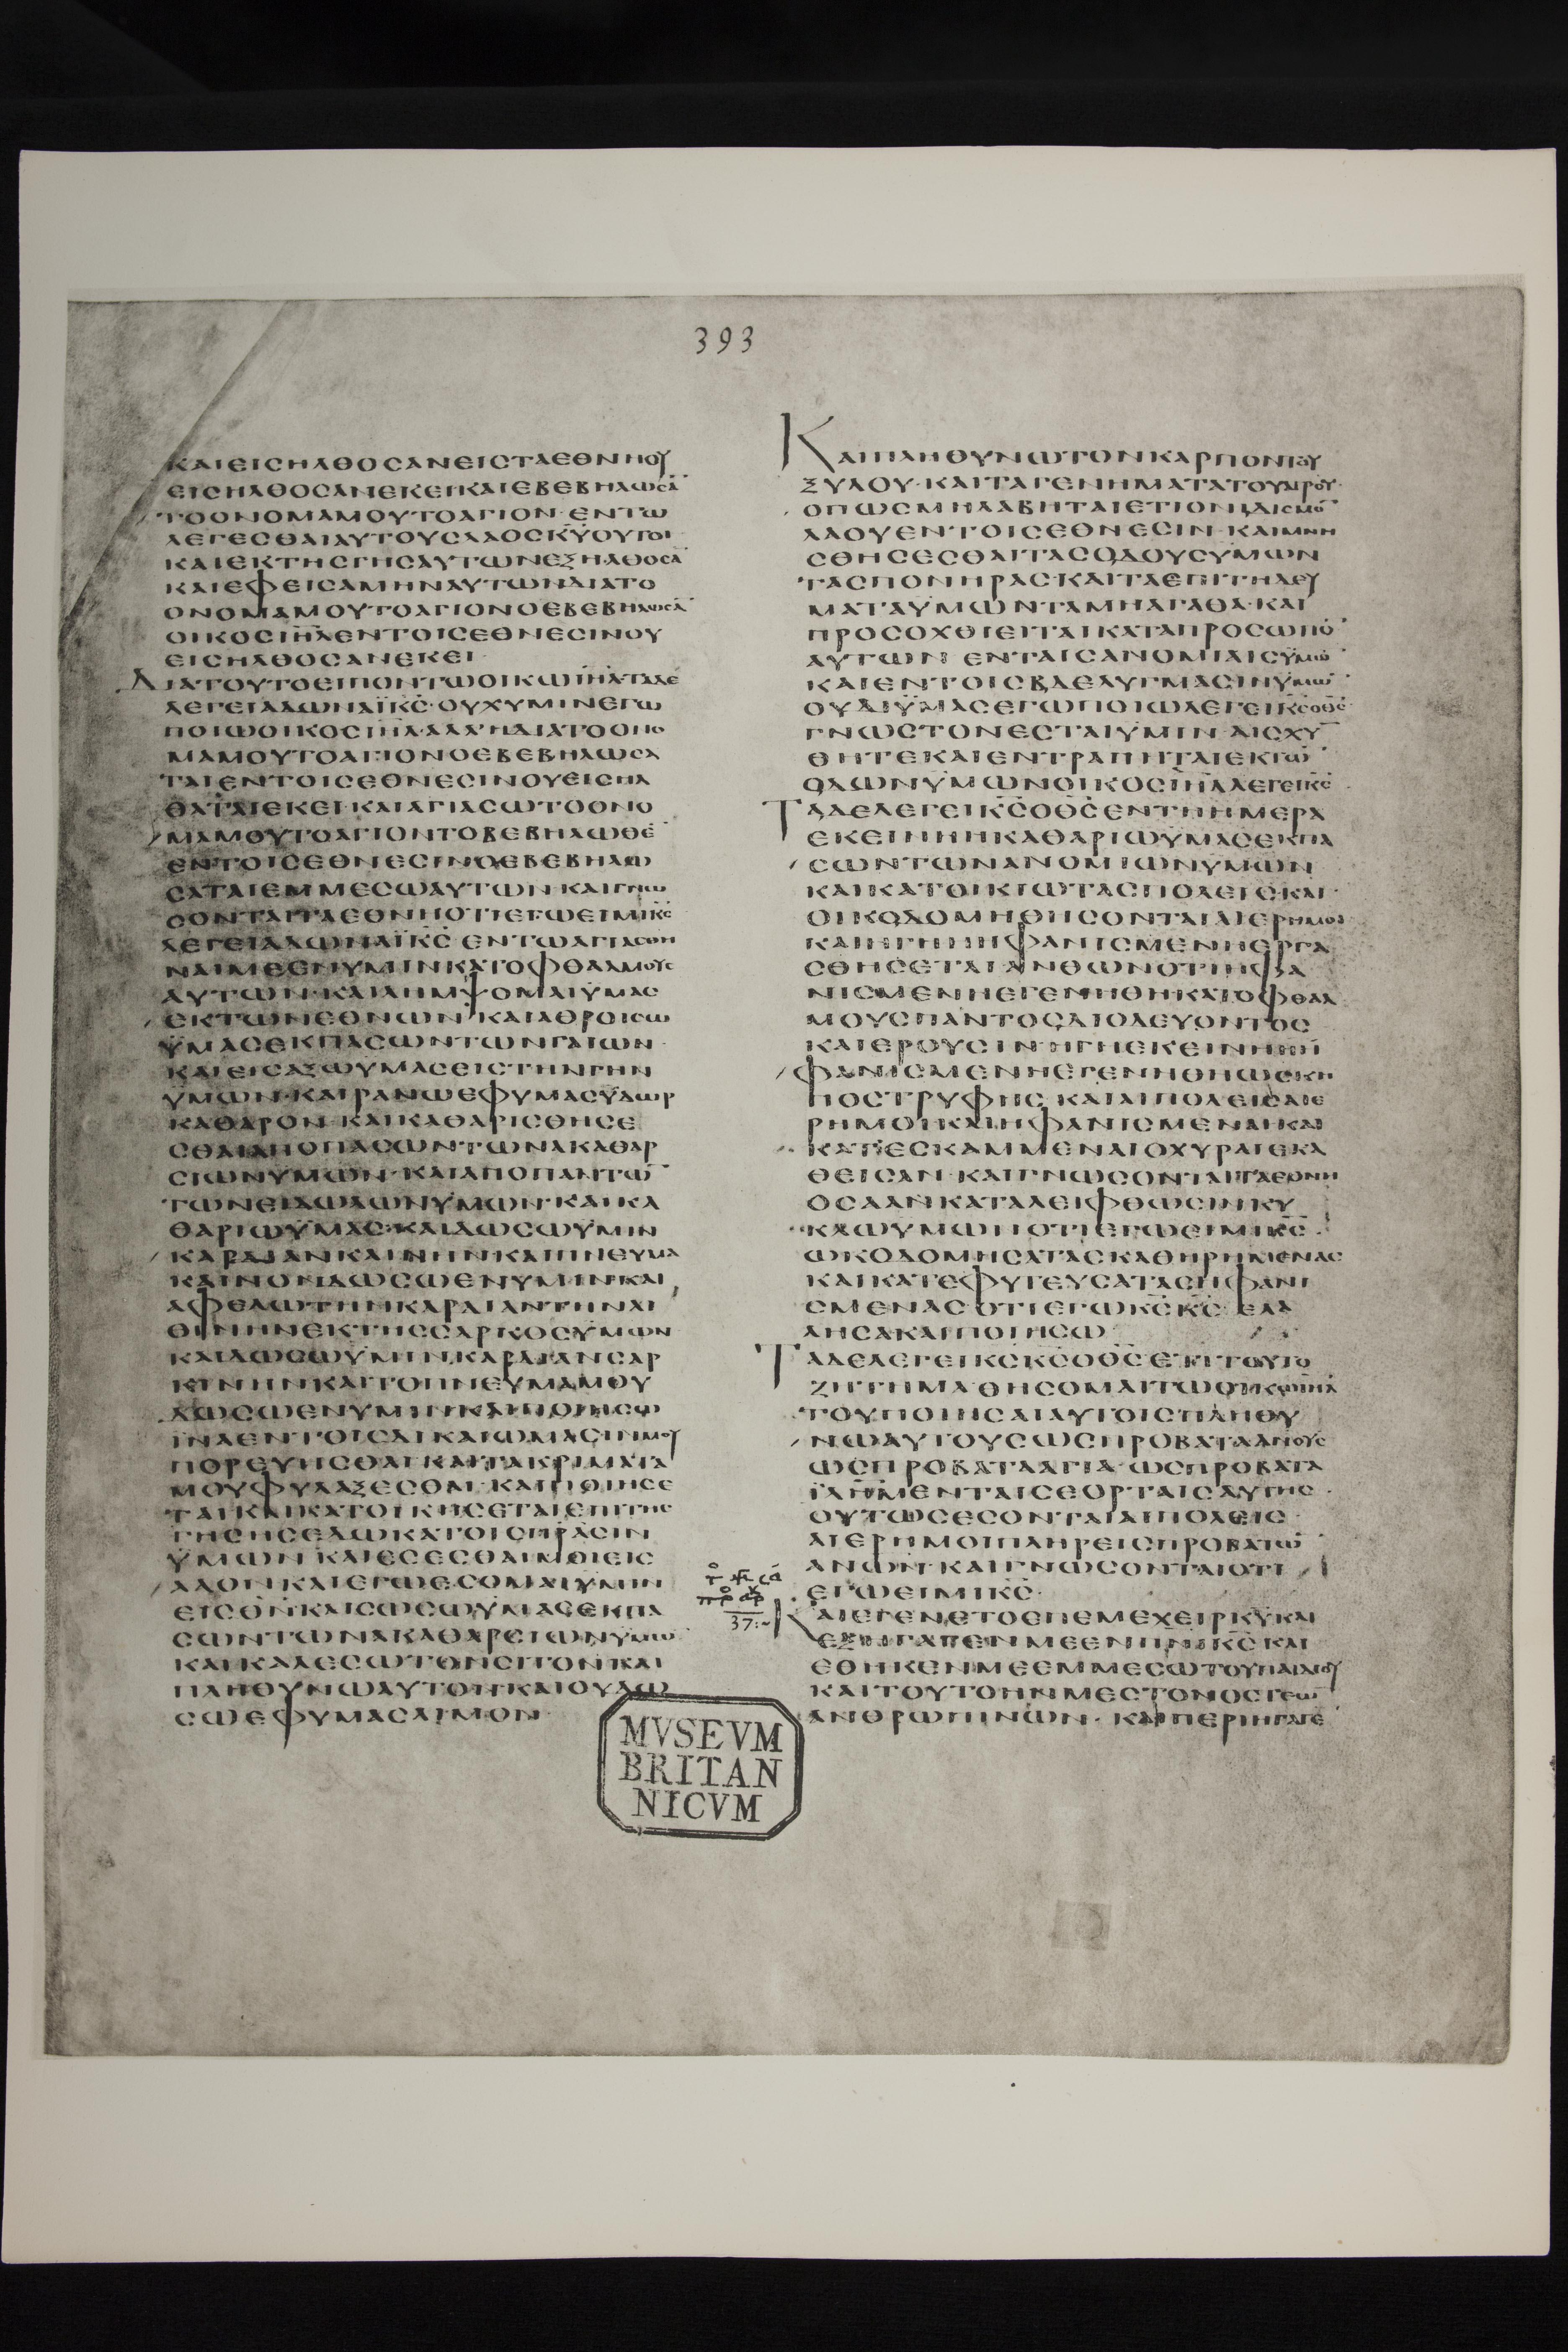 393
ΚΑΙΕΙCΗΛΘΟCΑΝΕΙCΤΑΕΘΝΗΟΥ
ΕΙCΗΛΘΟCΑΝΕΚΕΙΚΑΙΕΒΕΒΗΛΩCΑ̅
ΤΟΟΝΟΜΑΜΟΥΤΟΑΓΙΟΝ·ΕΝΤΩ
ΛΕΓΕCΘΑΙΑΥΤΟΥCΛΑΟCΚ̅Υ̅ΟΥΤΟΙ
ΚΑΙΕΚΤΗCΓΗCΑΥΤΩΝΕΞΗΛΘΟCΑ̅
ΚΑΙΕΦΕΙCΑΜΗΝΑΥΤΩΝΔΙΑΤΟ
ΟΝΟΜΑΜΟΥΤΟΑΓΙΟΝΟΕΒΕΒΗΛΩCΑ̅
ΟΙΚΟCΙ̅Η̅Λ̅ΕΝΤΟΙCΕΘΝΕCΙΝΟΥ
ΕΙCΗΛΘΟCΑΝΕΚΕΙ·
ΔΙΑΤΟΥΤΟΕΙΠΟΝΤΩΟΙΚΩΙ̅Η̅Λ̅ΤΑΔΕ
ΛΕΓΕΙΑΔΩΝΑΪΚ̅C̅·ΟΥΧΥΜΙΝΕΓΩ
ΠΟΙΩΟΙΚΟCΙ̅Η̅Λ̅·ΑΛΛΗΔΙΑΤΟΟΝΟ
ΜΑΜΟΥΤΟΑΓΙΟΝΟΕΒΕΒΗΛΩCΑ
ΤΑΙΕΝΤΟΙCΕΘΝΕCΙΝΟΥΕΙCΗΛ
ΘΑΤΑΙΕΚΕΙ·ΚΑΙΑΓΙΑCΩΤΟΟΝΟ
ΜΑΜΟΥΤΟΑΓΙΟΝΤΟΒΕΒΗΛΩΘΕ̅
ΕΝΤΟΙCΕΘΝΕCΙΝΟΕΒΕΒΗΛΩ
CΑΤΑΙΕΜΜΕCΩΑΥΤΩΝ·ΚΑΙΓΝΩ
CΟΝΤΑΙΤΑΕΘΝΗΟΤΙΕΓΩΕΙΜΙΚ̅C̅
ΛΕΓΕΙΑΔΩΝΑΪΚ̅C̅·ΕΝΤΩΑΓΙΑCΘΗ
ΝΑΙΜΕΕΝΥΜΙΝΚΑΤΟΦΘΑΛΜΟΥC
ΑΥΤΩΝ·ΚΑΙΛΗΜΨΟΜΑΙΫΜΑC
ΕΚΤΩΝΕΘΝΩΝ·ΚΑΙΑΘΡΟΙCΩ
ΫΜΑCΕΚΠΑCΩΝΤΩΝΓΑΙΩΝ·
ΚΑΙΕΙCΑΞΩΫΜΑCΕΙCΤΗΝΓΗΝ
ΫΜΩΝ·ΚΑΙΡΑΝΩΕΦΥΜΑCΫΔΩΡ
ΚΑΘΑΡΟΝ·ΚΑΙΚΑΘΑΡΙCΘΗCΕ
CΘΑΙΑΠΟΠΑCΩΝΤΩΝΑΚΑΘΑΡ
CΙΩΝΥΜΩΝ·ΚΑΙΑΠΟΠΑΝΤΩ̅
ΤΩΝΕΙΔΩΛΩΝΥΜΩΝ·ΚΑΙΚΑ
ΘΑΡΙΩΫΜΑC·ΚΑΙΔΩCΩΫΜΙΝ
ΚΑΡΔΙΑΝΚΑΙΝΗΝ·ΚΑΙΠΝΕΥΜΑ
ΚΑΙΝΟΝΔΩCΩΕΝΥΜΙΝ·ΚΑΙ
ΑΦΕΛΩΤΗΝΚΑΡΔΙΑΝΤΗΝΛΙ
ΘΙΝΗΝΕΚΤΗCCΑΡΚΟCΫΜΩΝ
ΚΑΙΔΩCΩΫΜΙΝΚΑΡΔΙΑΝCΑΡ
ΚΙΝΗΝ·ΚΑΙΤΟΠΝΕΥΜΑΜΟΥ
ΔΩCΩΕΝΥΜΙΝ·ΚΑΙΠΟΙΗCΩ
ΪΝΑΕΝΤΟΙCΔΙΚΑΙΩΜΑCΙΝΜΟΥ
ΠΟΡΕΥΗCΘΑΙ·ΚΑΙΤΑΚΡΙΜΑΤΑ
ΜΟΥΦΥΛΑΞΕCΘΑΙ·ΚΑΙΠΟΙΗCΕ
ΤΑΙ·ΚΑΙΚΑΤΟΙΚΗCΕΤΑΙΕΠΙΤΗC
ΓΗCΗCΕΔΩΚΑΤΟΙCΠΡΑCΙΝ
ΫΜΩΝ·ΚΑΙΕCΕCΘΑΙΜΟΙΕΙC
ΛΑΟΝ·ΚΑΙΕΓΩΕCΟΜΑΙΥΜΙΝ
ΕΙCΘ̅Ν̅·ΚΑΙCΩCΩΫΜΑCΕΚΠΑ
CΩΝΤΩΝΑΚΑΘΑΡCΙΩΝΥΜΩ̅
ΚΑΙΚΑΛΕCΩΤΟΝCΙΤΟΝ·ΚΑΙ
ΠΛΗΘΥΝΩΑΥΤΟΝ·ΚΑΙΟΥΔΩ
CΩΕΦΥΜΑCΛΙΜΟΝ·
ΚΑΙΠΛΗΘΥΝΩΤΟΝΚΑΡΠΟΝΤΟΥ
ΞΥΛΟΥ·ΚΑΙΤΑΓΕΝΗΜΑΤΑΤΟΥΑΓΡΟΥ·
ΟΠΩCΜΗΛΑΒΗΤΑΙΕΤΙΟΝΙΔΙCΜΟ̅
ΛΑΟΥΕΝΤΟΙCΕΘΝΕCΙΝ·ΚΑΙΜΝΗ
CΘΗCΕCΘΑΙΤΑCΟΔΟΥCΥΜΩΝ
ΤΑCΠΟΝΗΡΑC·ΚΑΙΤΑΕΠΙΤΗΔΕΥ
ΜΑΤΑΫΜΩΝΤΑΜΗΑΓΑΘΑ·ΚΑΙ
ΠΡΟCΟΧΘΙΕΙΤΑΙΚΑΤΑΠΡΟCΩΠΟ̅
ΑΥΤΩΝ ΕΝΤΑΙCΑΝΟΜΙΑΙCΫΜΩ̅
ΚΑΙΕΝΤΟΙCΒΔΕΛΥΓΜΑCΙΝΫΜΩ̅
ΟΥΔΙΫΜΑCΕΓΩΠΟΙΩΛΕΓΕΙΚ̅C̅ΟΘ̅C̅
ΓΝΩCΤΟΝΕCΤΑΙΫΜΙΝ·ΑΙCΧΥ̅
ΘΗΤΕΚΑΙΕΝΤΡΑΠΗΤΑΙΕΚΤΩ̅
ΟΔΩΝΫΜΩΝΟΙΚΟCΙ̅Η̅Λ̅ΛΕΓΕΙΚ̅C̅
ΤΑΔΕΛΕΓΕΙΚ̅C̅ΟΘ̅C̅ΕΝΤΗΗΜΕΡΑ
ΕΚΕΙΝΗΗΚΑΘΑΡΙΩΫΜΑCΕΚΠΑ
CΩΝΤΩΝΑΝΟΜΙΩΝΥΜΩΝ
ΚΑΙΚΑΤΟΙΚΙΩΤΑCΠΟΛΕΙC·ΚΑΙ
ΟΙΚΟΔΟΜΗΘΗCΟΝΤΑΙΑΙΕΡΗΜΟΙ
ΚΑΙΗΓΗΗΗΦΑΝΙCΜΕΝΗΕΡΓΑ
CΘΗCΕΤΑΙΑΝΘΩΝΟΤΙΗΦΑ
ΝΙCΜΕΝΗΕΓΕΝΗΘΗΚΑΤΟΦΘΑΛ
ΜΟΥCΠΑΝΤΟCΔΙΟΔΕΥΟΝΤΟC
ΚΑΙΕΡΟΥCΙΝ·ΗΓΗΕΚΕΙΝΗΗΗ
ΦΑΝΙCΜΕΝΗΕΓΕΝΗΘΗΩCΚΗ
ΠΟCΤΡΥΦΗC·ΚΑΙΑΙΠΟΛΕΙCΑΙΕ
ΡΗΜΟΙΚΑΙΗΦΑΝΙCΜΕΝΑΙΚΑΙ
ΚΑΤΕCΚΑΜΜΕΝΑΙΟΧΥΡΑΙΕΚΑ
ΘΕΙCΑΝ·ΚΑΙΓΝΩCΟΝΤΑΙΤΑΕΘΝΗ
ΟCΑΑΝΚΑΤΑΛΕΙΦΘΩCΙΝΚΥ
ΚΛΩΥΜΩΝΟΤΙΕΓΩΕΙΜΙΚ̅C̅
ΩΚΟΔΟΜΗCΑΤΑCΚΑΘΗΡΗΜΕΝΑC
ΚΑΙΚΑΤΕΦΥΤΕΥCΑΤΑCΗΦΑΝΙ
CΜΕΝΑC·ΟΤΙΕΓΩΚ̅C̅Κ̅C̅·ΕΛΑ
ΛΗCΑΚΑΙΠΟΙΗCΩ
ΤΑΔΕΛΕΓΕΙΚ̅C̅Κ̅C̅ΟΘ̅C̅ΕΤΙΤΟΥΤΟ
ΖΗΤΗΜΑΘΗCΟΜΑΙΤΩΟΙΚΩΙ̅Η̅Λ̅
ΤΟΥΠΟΙΗCΑΙΑΥΤΟΙCΠΛΗΘΥ
ΝΩΑΥΤΟΥCΩCΠΡΟΒΑΤΑΑΝΟΥC
ΩCΠΡΟΒΑΤΑΑΓΙΑ·ΩCΠΡΟΒΑΤΑ
Ϊ̅Λ̅Η̅Μ̅ΕΝΤΑΙCΕΟΡΤΑΙCΑΥΤΗC·
ΟΥΤΩCΕCΟΝΤΑΙΑΙΠΟΛΕΙC
ΑΙΕΡΗΜΟΙΠΛΗΡΕΙCΠΡΟΒΑΤΩ̅
ΑΝΩΝ·ΚΑΙΓΝΩCΟΝΤΑΙΟΤΙ
ΕΓΩΕΙΜΙΚ̅C̅·
37:~
ΚΑΙΕΓΕΝΕΤΟΕΠΕΜΕΧΕΙΡΚ̅Υ̅ΚΑΙ
ΕΞΗΓΑΓΕΝΜΕΕΝΠΝ̅Ι̅Κ̅C̅·ΚΑΙ
ΕΘΗΚΕΝΜΕΕΜΜΕCΩΤΟΥΠΑΙΔΙΟΥ
ΚΑΙΤΟΥΤΟΗΝΜΕCΤΟΝΟCΤΕΩ̅
ΑΝΘΡΩΠΙΝΩΝ·ΚΑΙΠΕΡΙΗΓΑΓΕ
MVSEVM
BRITAN
NICVM